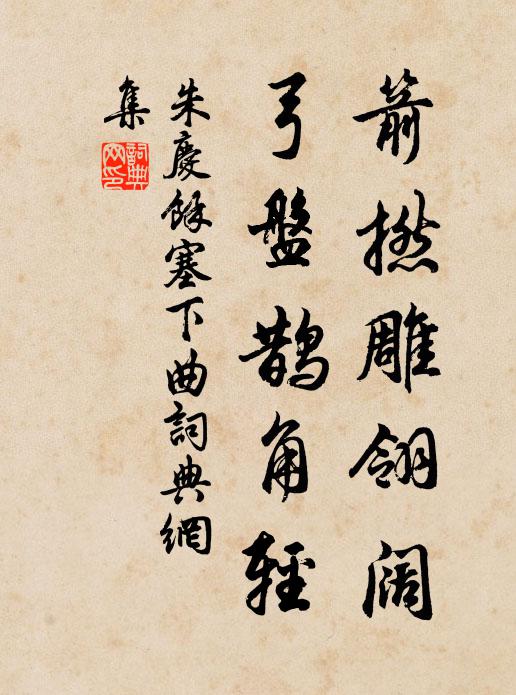 箭撚雕翎阔
弓盤鹊角輕
朱慶餘塞下曲詞典網
集
詞典
网印